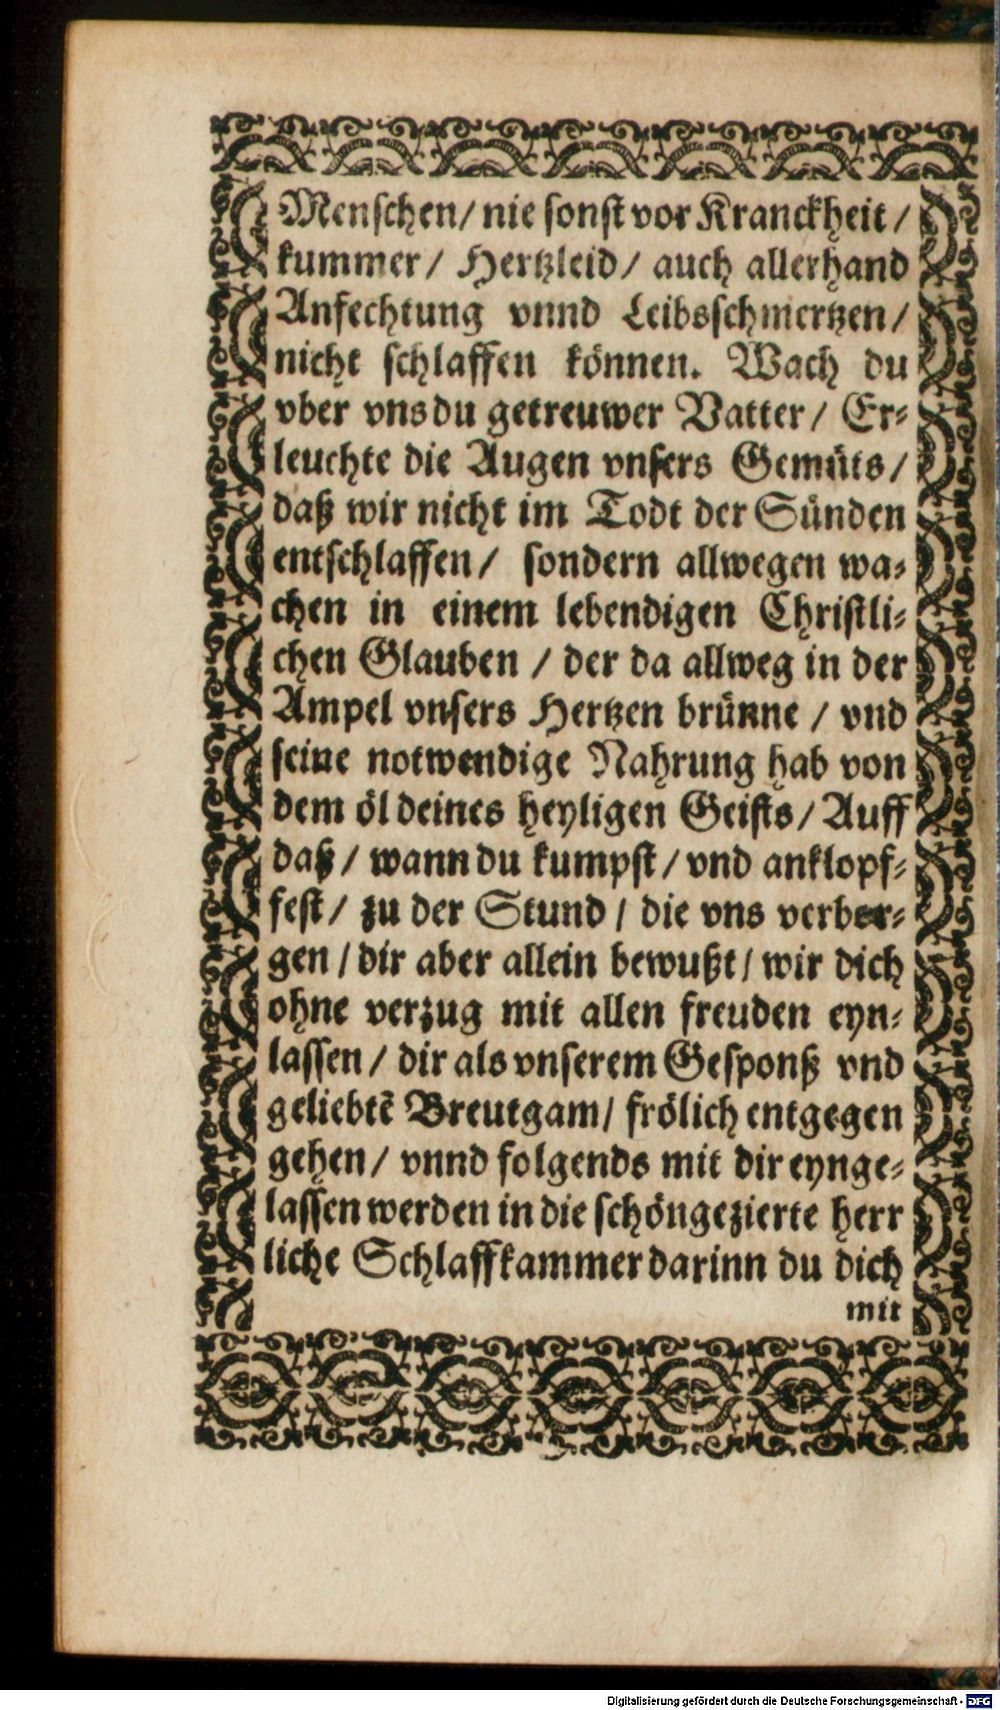 Menschen/ nie sonst vor Kranckheit/
kummer/ Hertzleid/ auch allerhand
Anfechtung vnnd Leibsschmertzen/
nicht schlaffen können. Wach du
vber vns du getreuwer Vatter/ Er-
leuchte die Augen vnsers Gemüts/
daß wir nicht im Todt der Sünden
entschlaffen/ sondern allwegen wa-
chen in einem lebendigen Christli-
chen Glauben / der da allweg in der
Ampel vnsers Hertzen brünne / vnd
seine notwendige Nahrung hab von
dem öl deines heyligen Geists/ Auff
daß/ wann du kumpst/ vnd anklopf-
fest/ zu der Stund / die vns verbor-
gen / dir aber allein bewußt/ wir dich
ohne verzug mit allen freuden eyn-
lassen/ dir als vnserem Gesponß vnd
geliebtē Breutgam/ frölich entgegen
gehen/ vnnd folgends mit dir eynge-
lassen werden in die schöngezierte herr
liche Schlaffkammer darinn du dich
mit
Digitalisierung gefördert durch die Deutsche Forschungsgemeinschaft - DFG